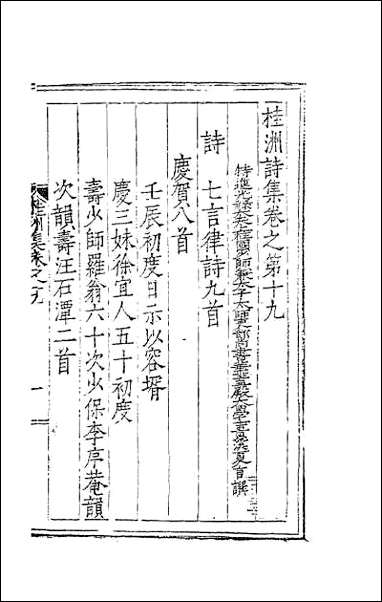 桂洲詩集卷之第十九
特進光祿大夫柱國少師兼太子太師吏部尚書華蓋殿大學士貴溪夏言撰
詩　七言律詩九首
慶賀八首
壬辰初度日示以容壻
慶三妹徐宜人五十初度
壽少師羅翁六十次少保李序菴韻
次韻壽汪石潭二首
桂洲集卷之十九
一